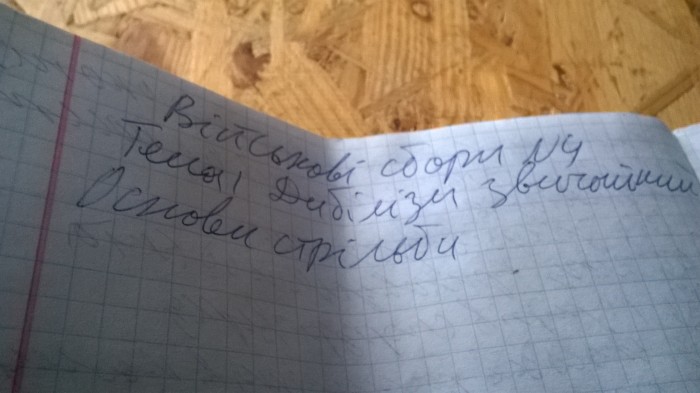 Військові збори №4
Тема: Дибілізм звичайний
Основи стрільби